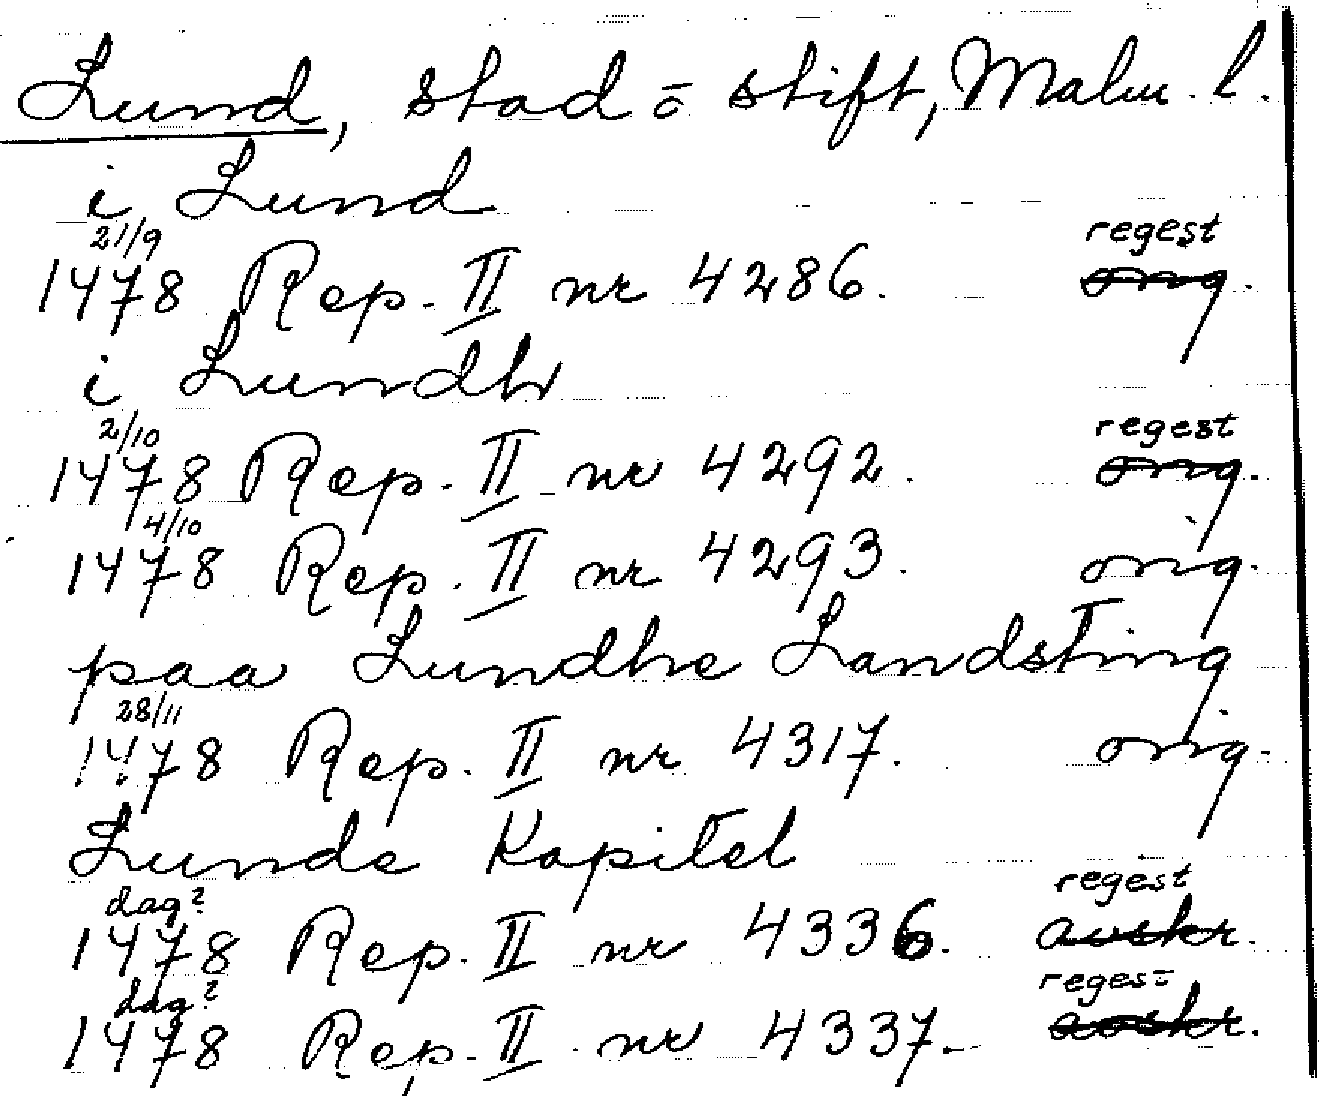 Lund, stad o stift, Malm. l.
i Lund
21/9 regest
1478 Rep. II nr 4286. orig.
i Lundh
2/10 regest
1478 Rep. II nr 4292. orig.
4/10
1478 Rep. II nr 4293. orig.
paa Lundhe Landsting
28/11
1478 Rep. II nr 4317. orig.
Lunde Kapitel
dag? regest
1478 Rep. II nr 4336. avskr.
dag? regest
1478 Rep. II nr 4337. avskr.